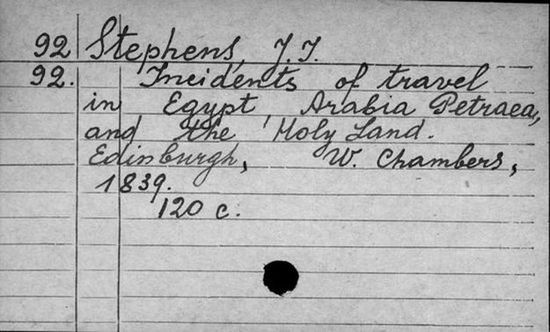 92 Stephens, J. J.
92. Incidents of travel
in Egypt, Arabia Petraea,
and the Holy Land.
Edinburgh, W. Chambers,
1839.
120 c.